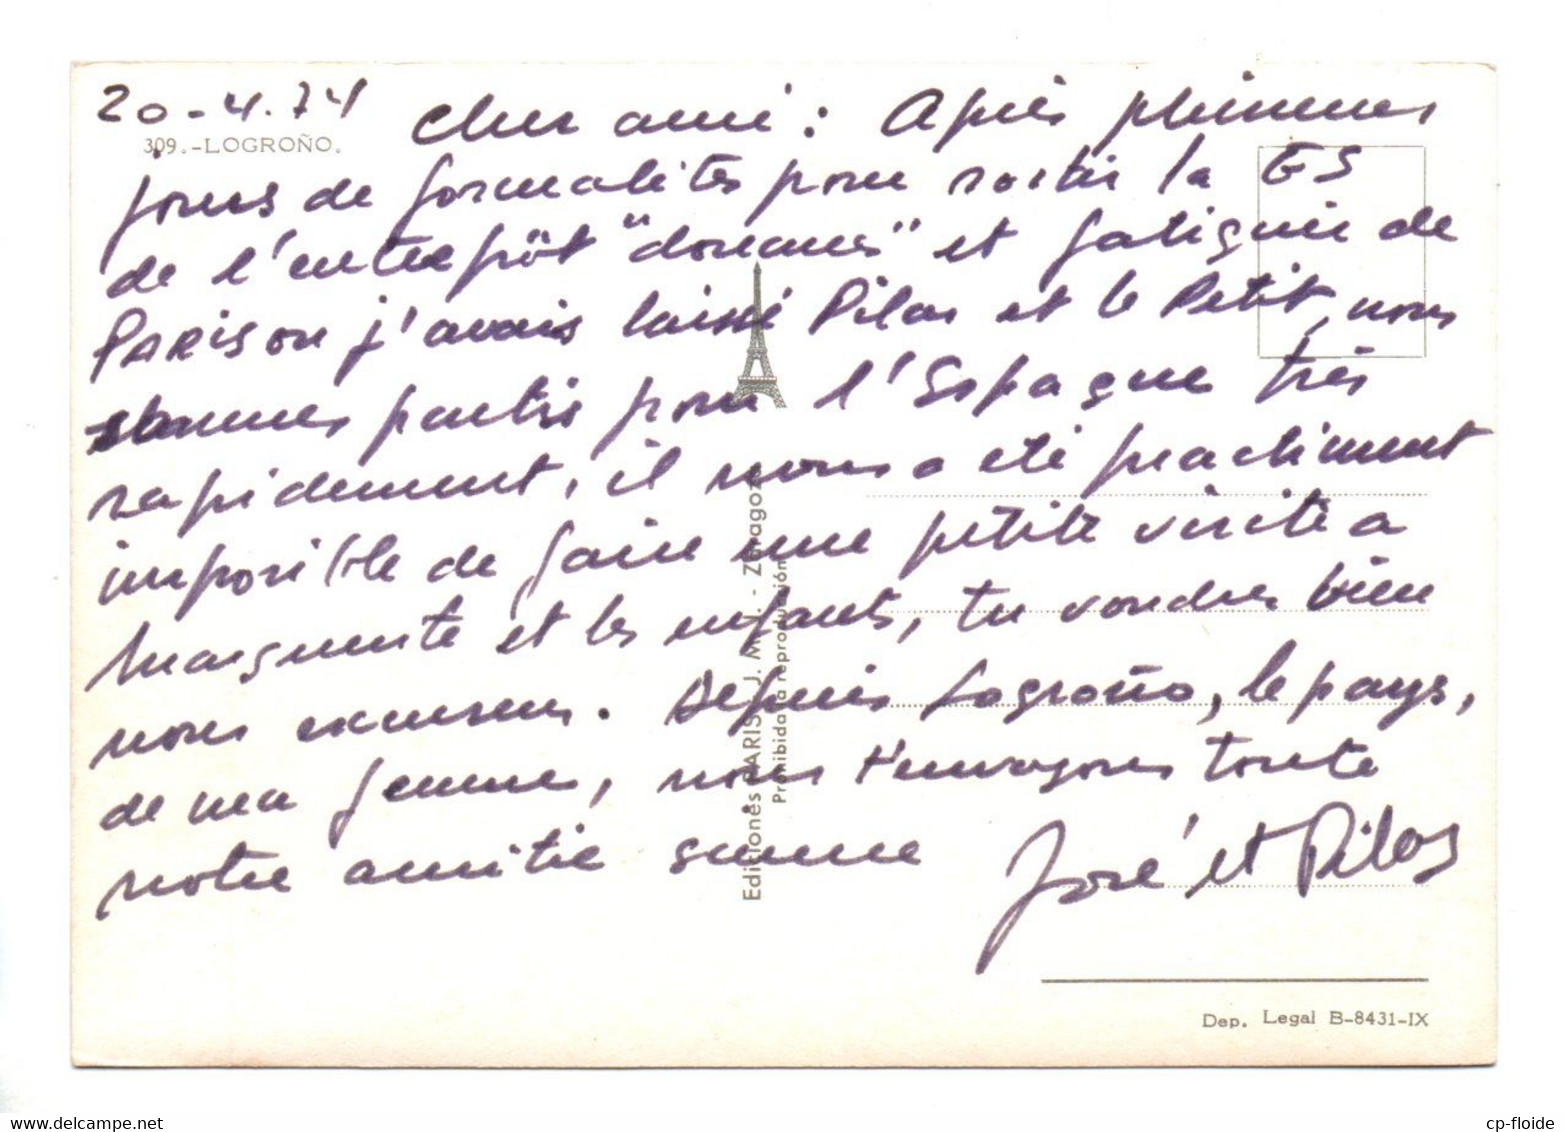 20-4.74
309.-LOGROÑO.
cher ami : Après plusieurs
jours de formalités pour sortir la GS
de l'entrepôt "douanes" et fatiguée de
PARIS ou j'avais laissé Pilar et le Petit, nous
sommes partis pour l'Espagne très
rapidement, il nous a été practiment
imposible de faire une petite visite a
Marguerite et les enfants, tu voudras bien
nous excuser. Depuis Logroño, le pays,
de ma femme, nous t'envoyons toute
notre amitie
José et Pilar
Ediciones PARIS J. M. - Zaragoza
Prohibida la reproducción
Dep. Legal B-8431-IX
cp-floide